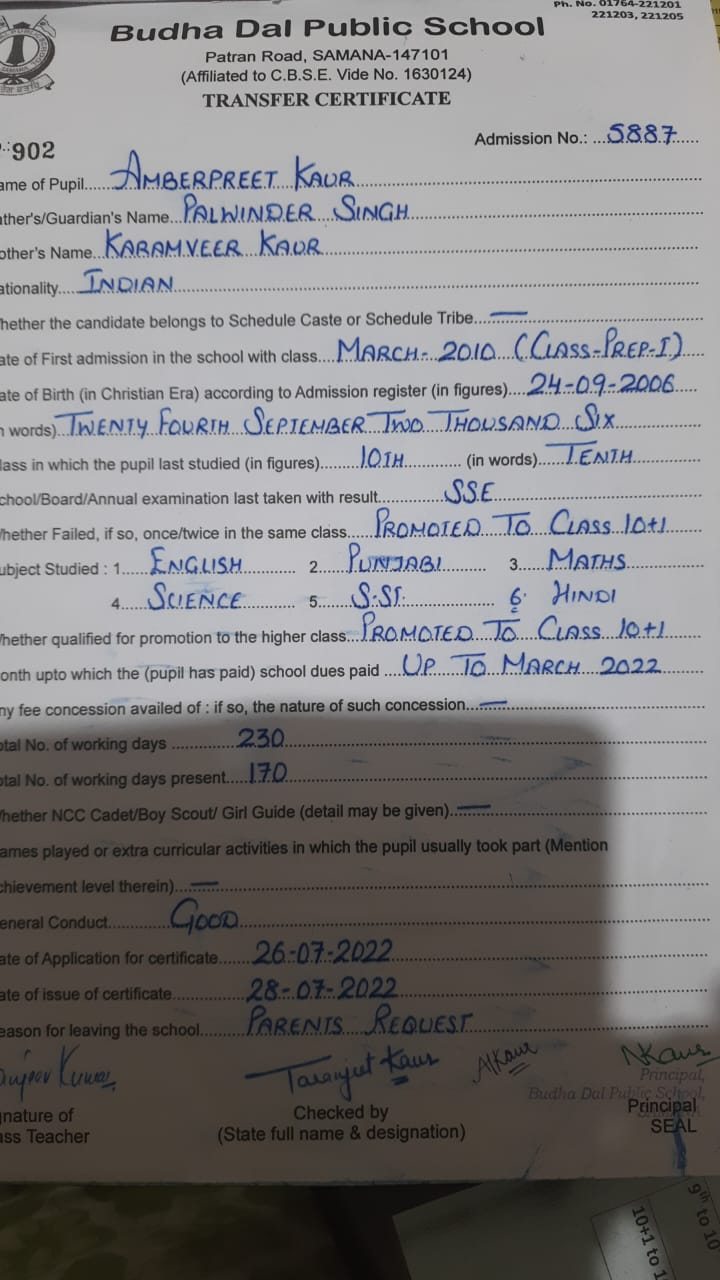 Ph. No. 01764-221201
221203, 221205
Budha Dal Public School
Patran Road, SAMANA-147101
(Affiliated to C.B.S.E. Vide No. 1630124)
TRANSFER CERTIFICATE
902
Admission No.: ...5887
ame of Pupil AMBERPREET KAUR
ather's/Guardian's Name PALWINDER SINGH
other's Name KARAMVEER KAUR
ationality INDIAN
hether the candidate belongs to Schedule Caste or Schedule Tribe —
ate of First admission in the school with class MARCH- 2010 (CLASS-PREP-I)
ate of Birth (in Christian Era) according to Admission register (in figures) 24-09-2006
words) TWENTY FOURTH SEPTEMBER TWO THOUSAND SIX
lass in which the pupil last studied (in figures) 10TH (in words) TENTH
chool/Board/Annual examination last taken with result SSE
hether Failed, if so, once/twice in the same class PROMOTED TO CLASS 10+1
ubject Studied : 1. ENGLISH 2. PUNJABI 3. MATHS
4. SCIENCE 5. S.ST. 6. HINDI
hether qualified for promotion to the higher class PROMOTED TO CLASS 10+1
onth upto which the (pupil has paid) school dues paid UP TO MARCH 2022
ny fee concession availed of : if so, the nature of such concession —
otal No. of working days 230
otal No. of working days present 170
hether NCC Cadet/Boy Scout/ Girl Guide (detail may be given) —
ames played or extra curricular activities in which the pupil usually took part (Mention
chievement level therein) —
eneral Conduct GOOD
ate of Application for certificate 26-07-2022
ate of issue of certificate 28-07-2022
eason for leaving the school PARENTS REQUEST
Kumar Taranjeet Kaur AKaur NKaur
Principal,
Budha Dal Public School,
gnature of Checked by Principal
ass Teacher (State full name & designation) SEAL
9th to 10
10+1 to 1